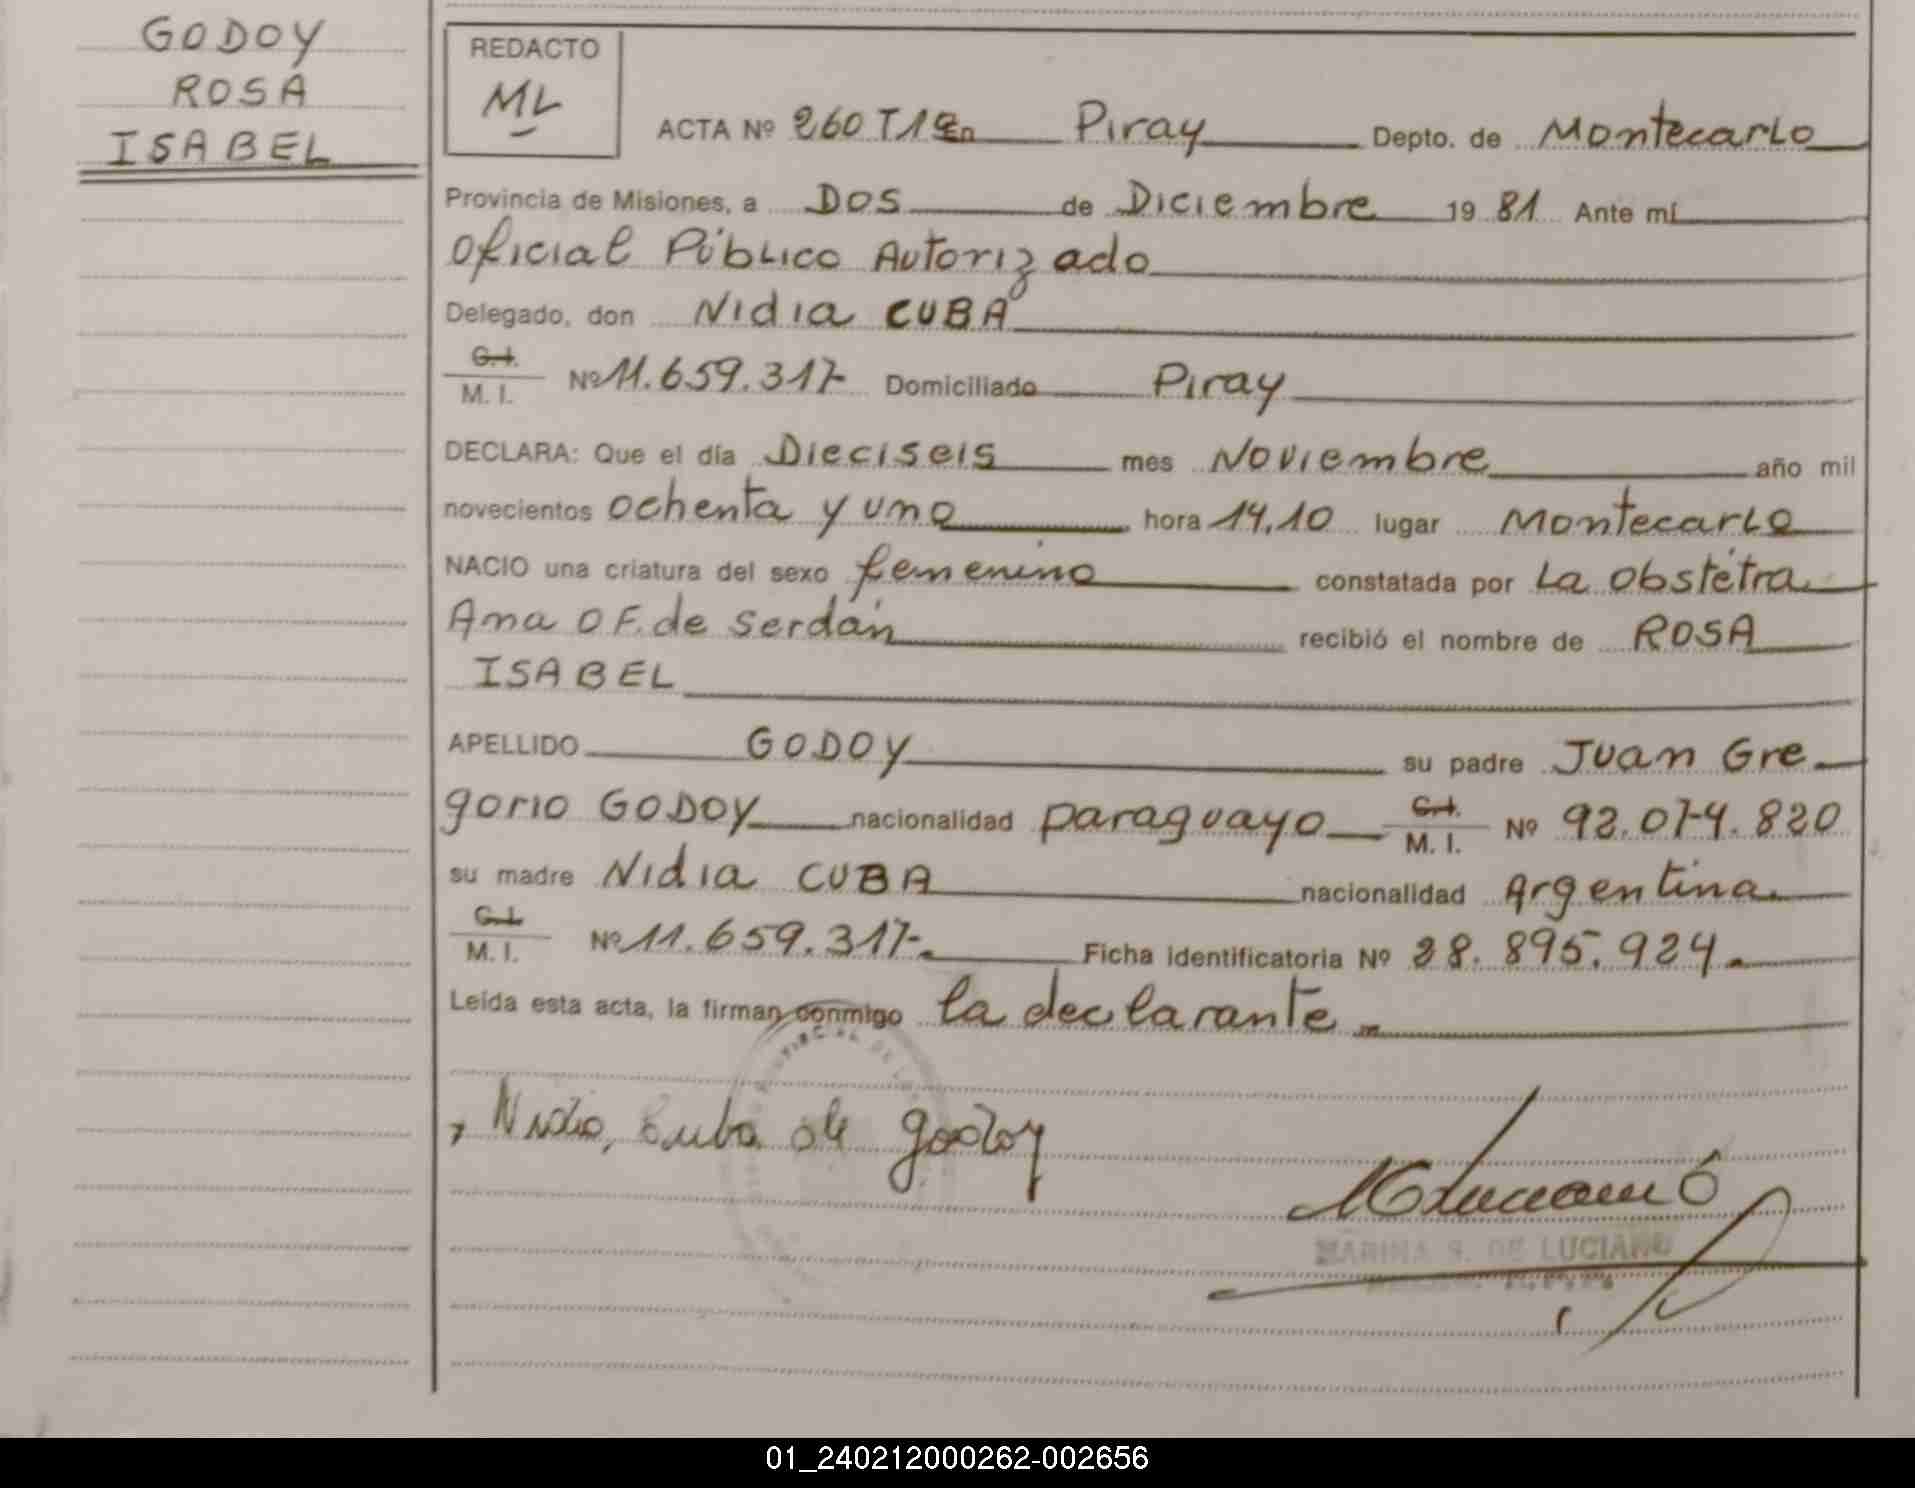 GODOY
ROSA
ISABEL
REDACTO
ML
ACTA Nº 260 T1º En Piray Depto. de Montecarlo
Provincia de Misiones, a Dos de Diciembre 19 81 Ante mí
Oficial Público Autorizado
Delegado, don Nidia CUBA
C.I.
M. I. Nº 11.659.317 Domiciliado Piray
DECLARA: Que el día Dieciseis mes Noviembre año mil
novecientos ochenta y uno hora 14,10 lugar Montecarlo
NACIO una criatura del sexo femenino constatada por La Obstétra
Ana O F. de Serdán recibió el nombre de ROSA
ISABEL
APELLIDO GODOY su padre Juan Gre
gorio GODOY nacionalidad paraguayo C.I. M. I. Nº 92.074.820
su madre Nidia CUBA nacionalidad Argentina.
C.I.
M. I. Nº 11.659.317-. Ficha identificatoria Nº 28.895.924.
Leída esta acta, la firman conmigo la declarante.
Nidia, Cuba de godoy
MARINA S. DE LUCIANO
01_240212000262-002656